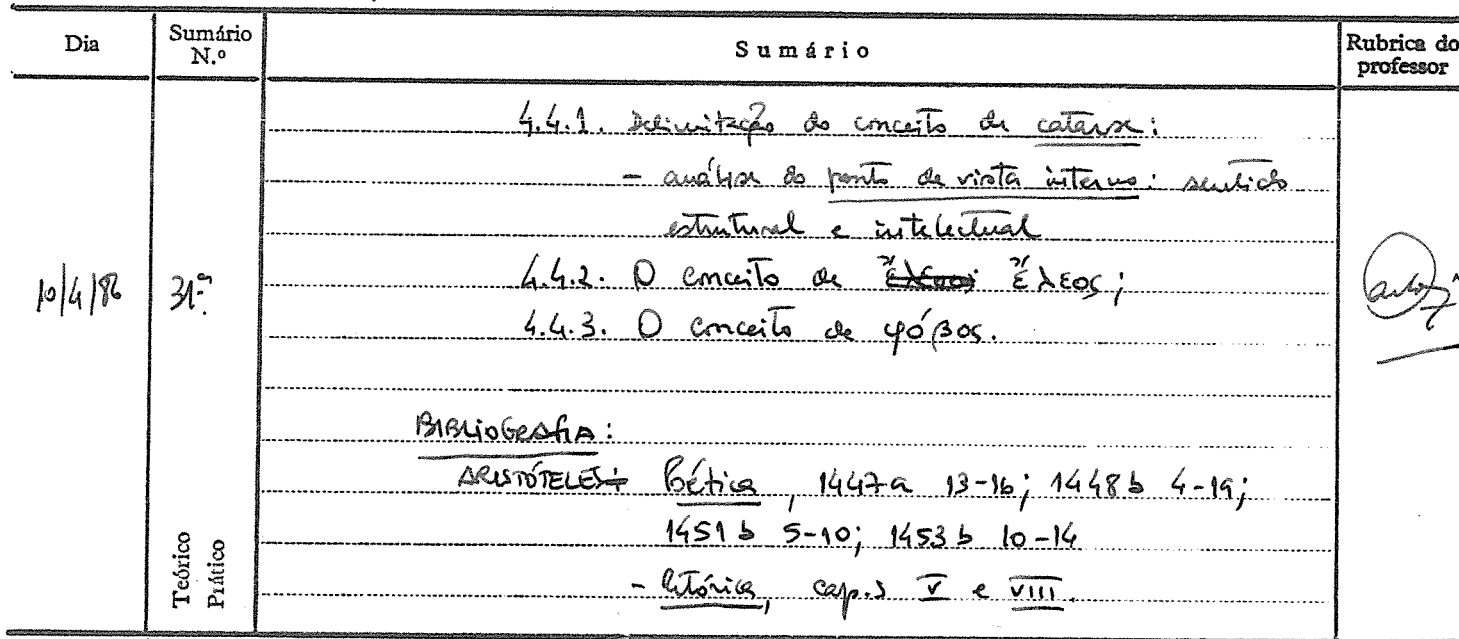 Dia
Sumário N.º
Sumário
Rubrica do professor
4.4.1. Delimitação do conceito de catarse:
- análise do ponto de vista interno: sentido
estrutural e intelectual
10/4/86
31.ª
4.4.2. O conceito de ἔλεος;
4.4.3. O conceito de φόβος.
BIBLIOGRAFIA:
ARISTÓTELES: Poética, 1447a 13-16; 1448b 4-19;
1451b 5-10; 1453b 10-14
- Retórica, cap.s V e VIII.
Teórico
Prático